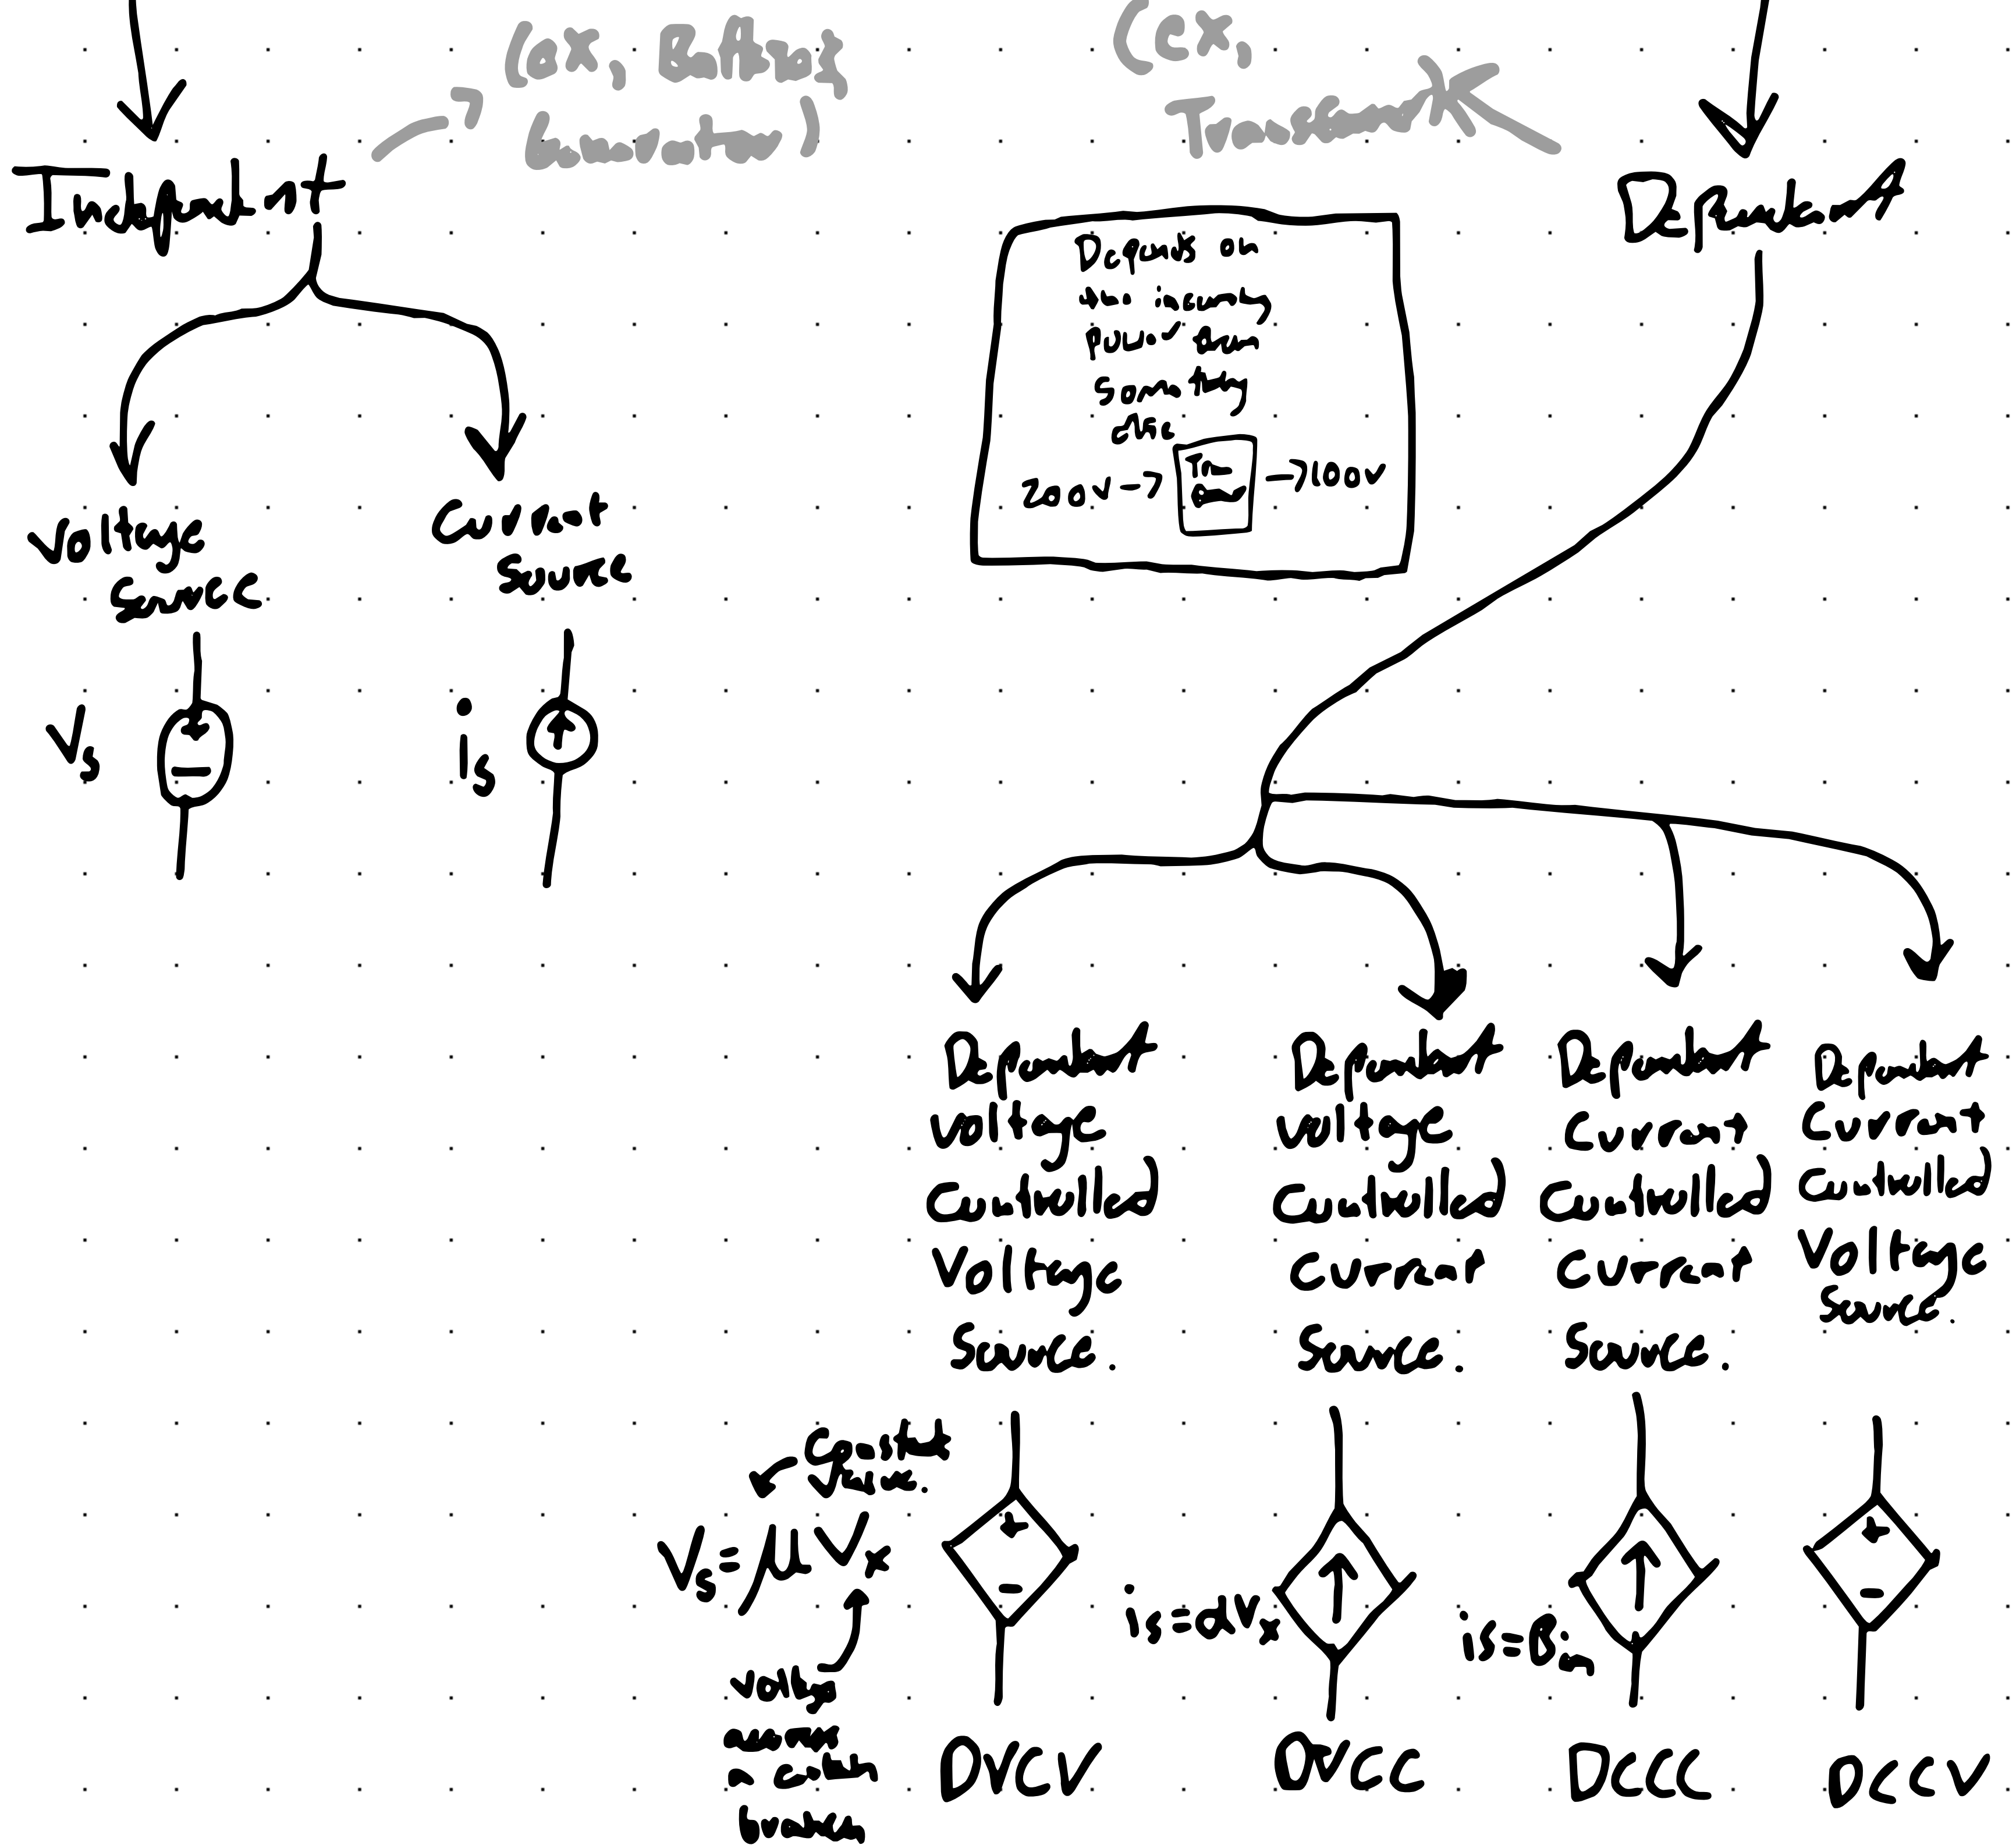 (ex, Battery
Generator)
(ex,
Independent
Dependent
Depends on
the incoming
power from
something
else
200v → → 100v
Voltage
Source
Current
Source
Vs
is
Dependent
Voltage
Controlled
Voltage
Source.
Dependent
Voltage
Controlled
Current
Source.
Dependent
Current
Controlled
Current
Source.
Dependent
Current
Controlled
Voltage
Source.
Constant
Value.
Vs=μVx
is=αVx
is=βi
voltage
branch
DVCV
DVCC
DCCC
DCCV